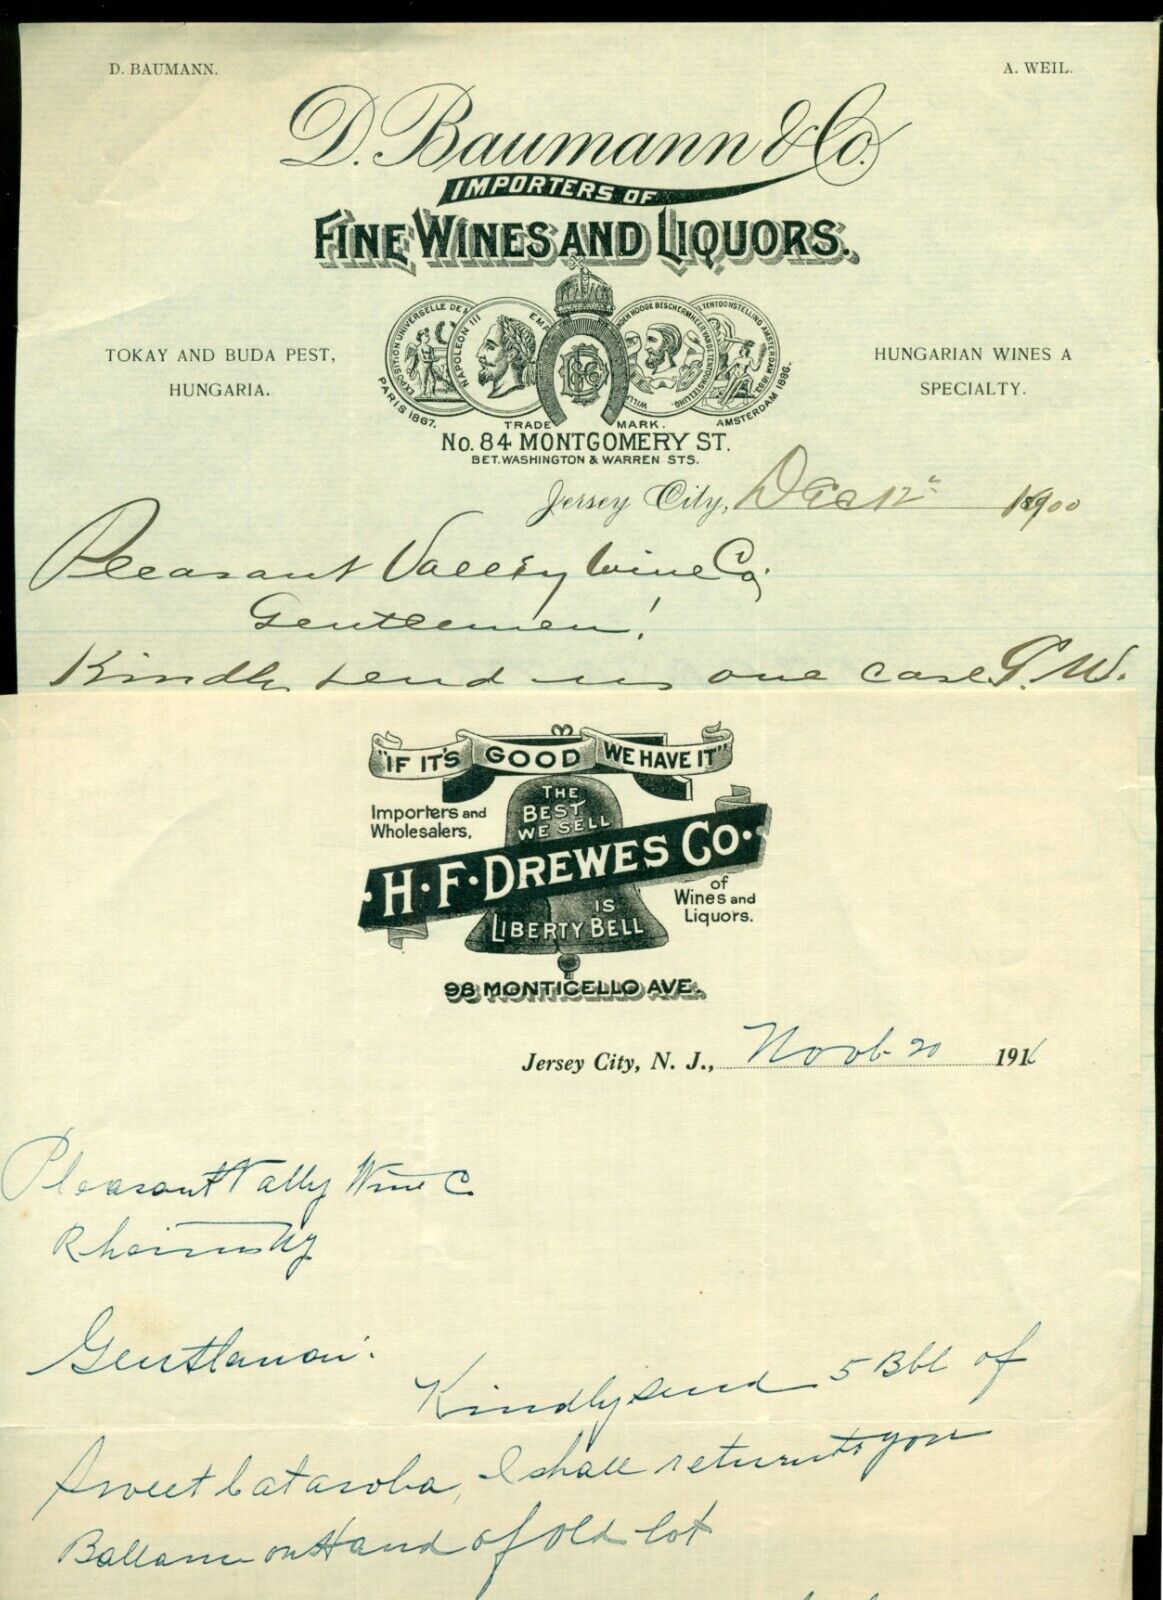 D. BAUMANN. A. WEIL.
D. Baumann & Co.
IMPORTERS OF
FINE WINES AND LIQUORS.
TOKAY AND BUDA PEST,
HUNGARIA.
EXPOSITION UNIVERSELLE DE
PARIS 1867.
NAPOLEON III EMP
TENTOONSTELLING AMSTERDAM 1883
AMSTERDAM 1886.
HUNGARIAN WINES A
SPECIALTY.
TRADE MARK.
No. 84 MONTGOMERY ST.
BET. WASHINGTON & WARREN STS.
Jersey City, Dec 12th 1900
Pleasant Valley Wine Co.
Gentlemen!
Kindly send us one case G. W.
"IF IT'S GOOD WE HAVE IT"
Importers and
Wholesalers,
THE
BEST
WE SELL
H. F. DREWES CO.
of
Wines and
Liquors.
IS
LIBERTY BELL
98 MONTICELLO AVE.
Jersey City, N. J., Novb 20 1916
Pleasant Vally Wine C.
Rheims NY
Gentlaman:
Kindly send 5 Bbl of
Sweet Catawba, I shall return to you
Ballance on Hand of old lot